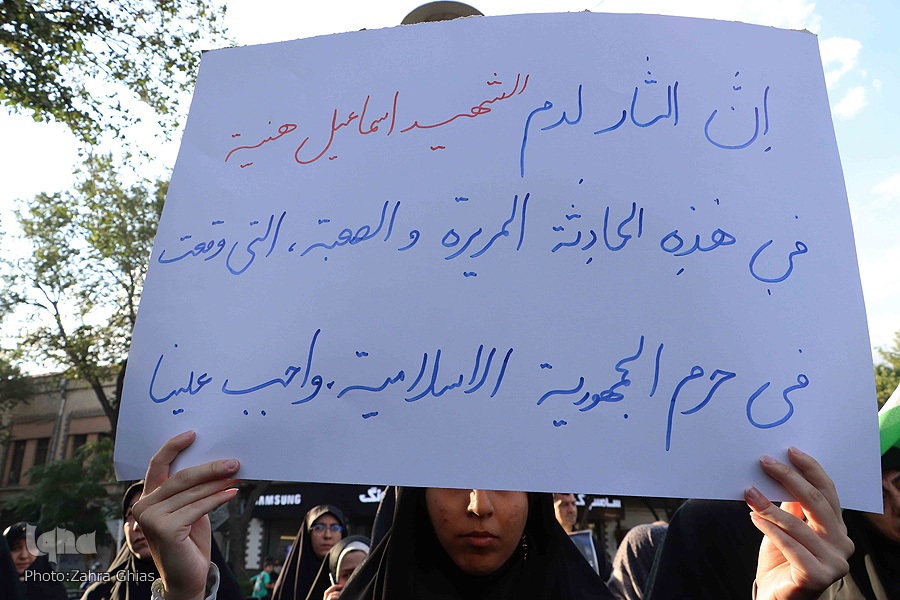 إنّ الثأر لدم الشهيد اسماعيل هنية
في هٰذِهِ الحادِثة المريرّة و الصعبة، التي وقعت
في حرم الجمهورية الاسلامية، واجب علينا
SAMSUNG
iqna
Photo:Zahra Ghias